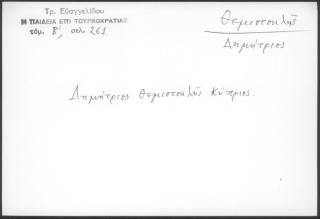 Τρ. Εὐαγγελίδου
Η ΠΑΙΔΕΙΑ ΕΠΙ ΤΟΥΡΚΟΚΡΑΤΙΑΣ
τόμ. Β', σελ. 261
Θεμιστοκλῆς
Δημήτριος
Δημήτριος Θεμιστοκλῆς Κύπριος.